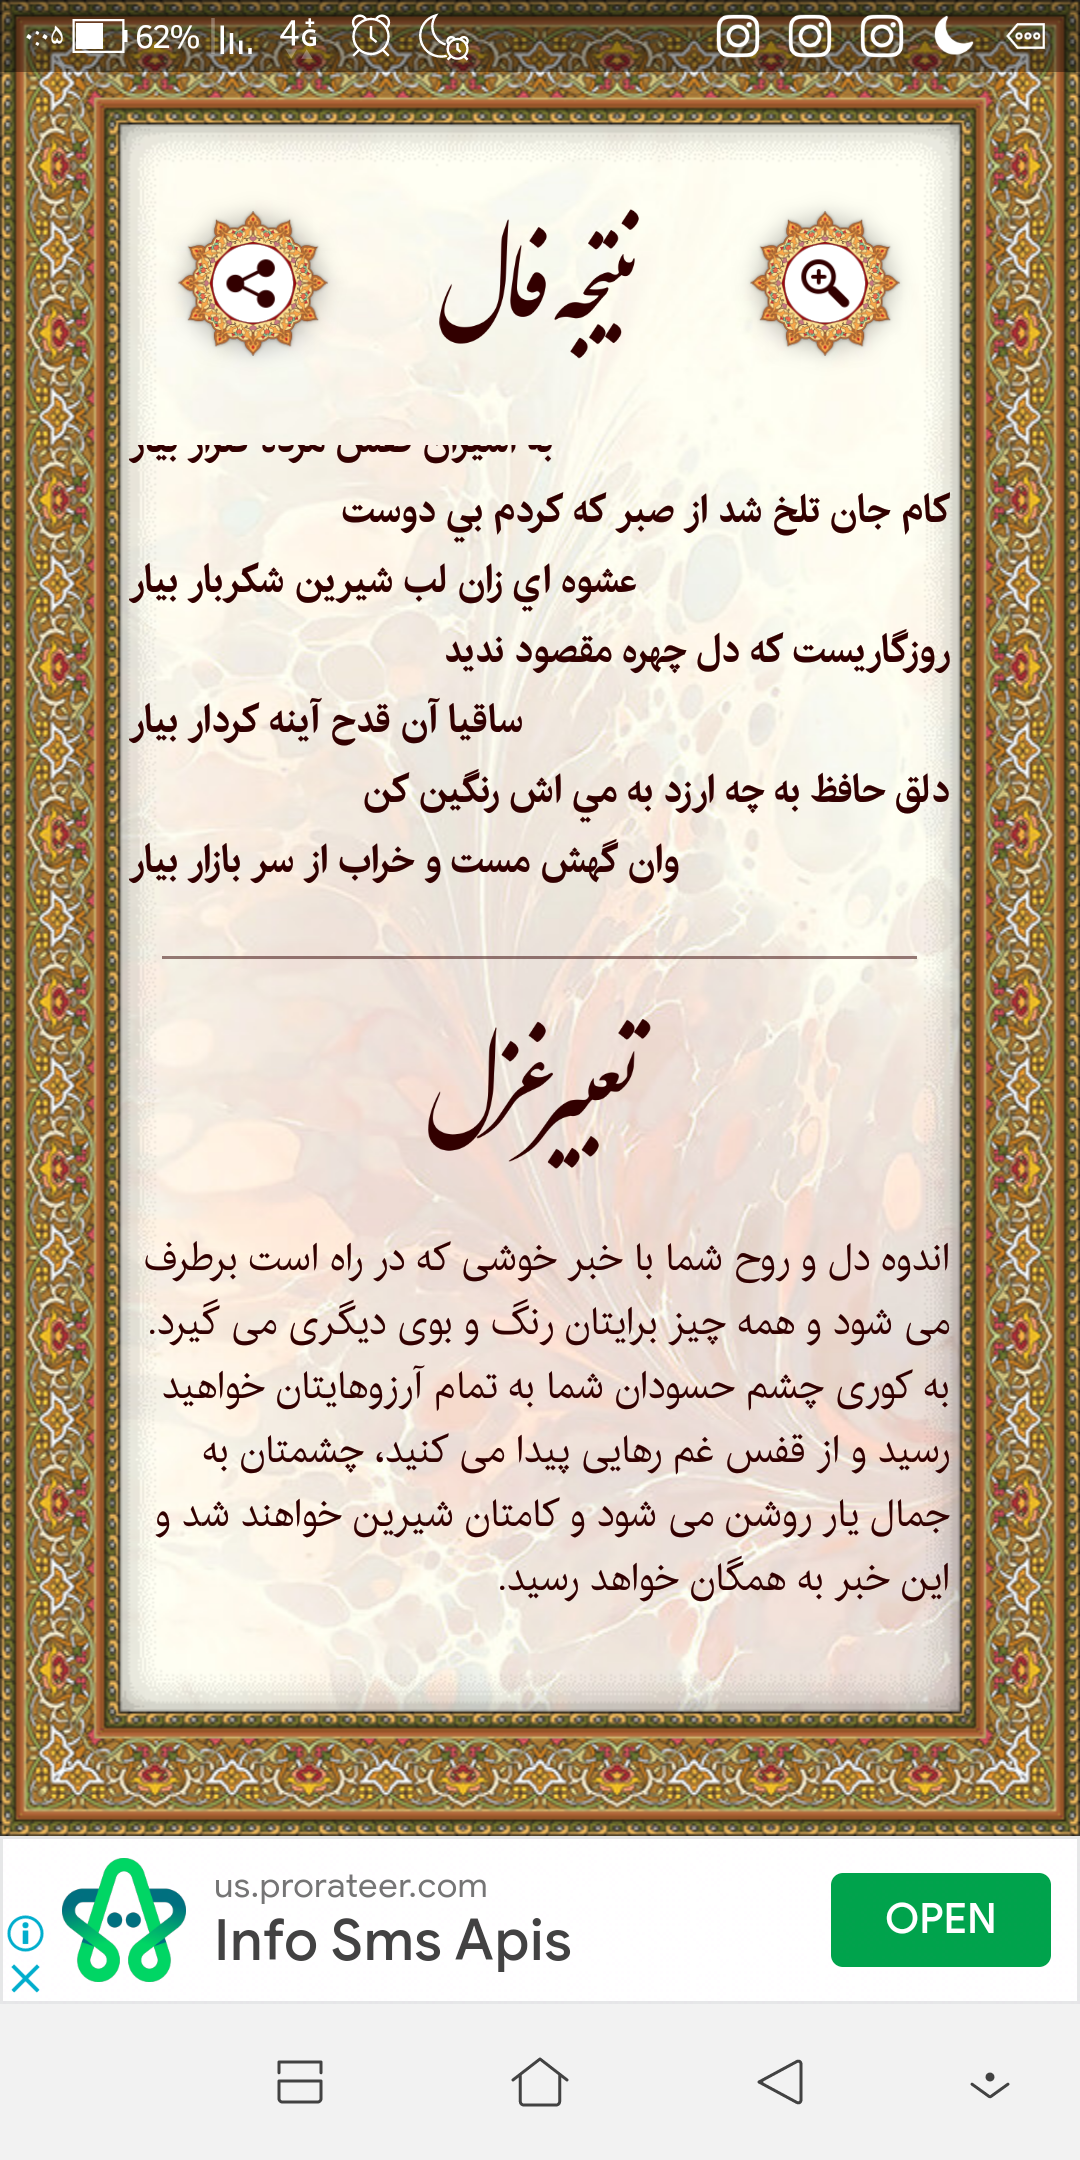 ۰:۰۵ 62% 4G+
نتیجه فال
کام جان تلخ شد از صبر که کردم بي دوست
عشوه اي زان لب شیرین شکربار بیار
روزگاریست که دل چهره مقصود ندید
ساقیا آن قدح آینه کردار بیار
دلق حافظ به چه ارزد به مي اش رنگین کن
وان گهش مست و خراب از سر بازار بیار
تعبیر غزل
اندوه دل و روح شما با خبر خوشی که در راه است برطرف
می شود و همه چیز برایتان رنگ و بوی دیگری می گیرد.
به کوری چشم حسودان شما به تمام آرزوهایتان خواهید
رسید و از قفس غم رهایی پیدا می کنید، چشمتان به
جمال یار روشن می شود و کامتان شیرین خواهند شد و
این خبر به همگان خواهد رسید.
us.prorateer.com
Info Sms Apis
OPEN